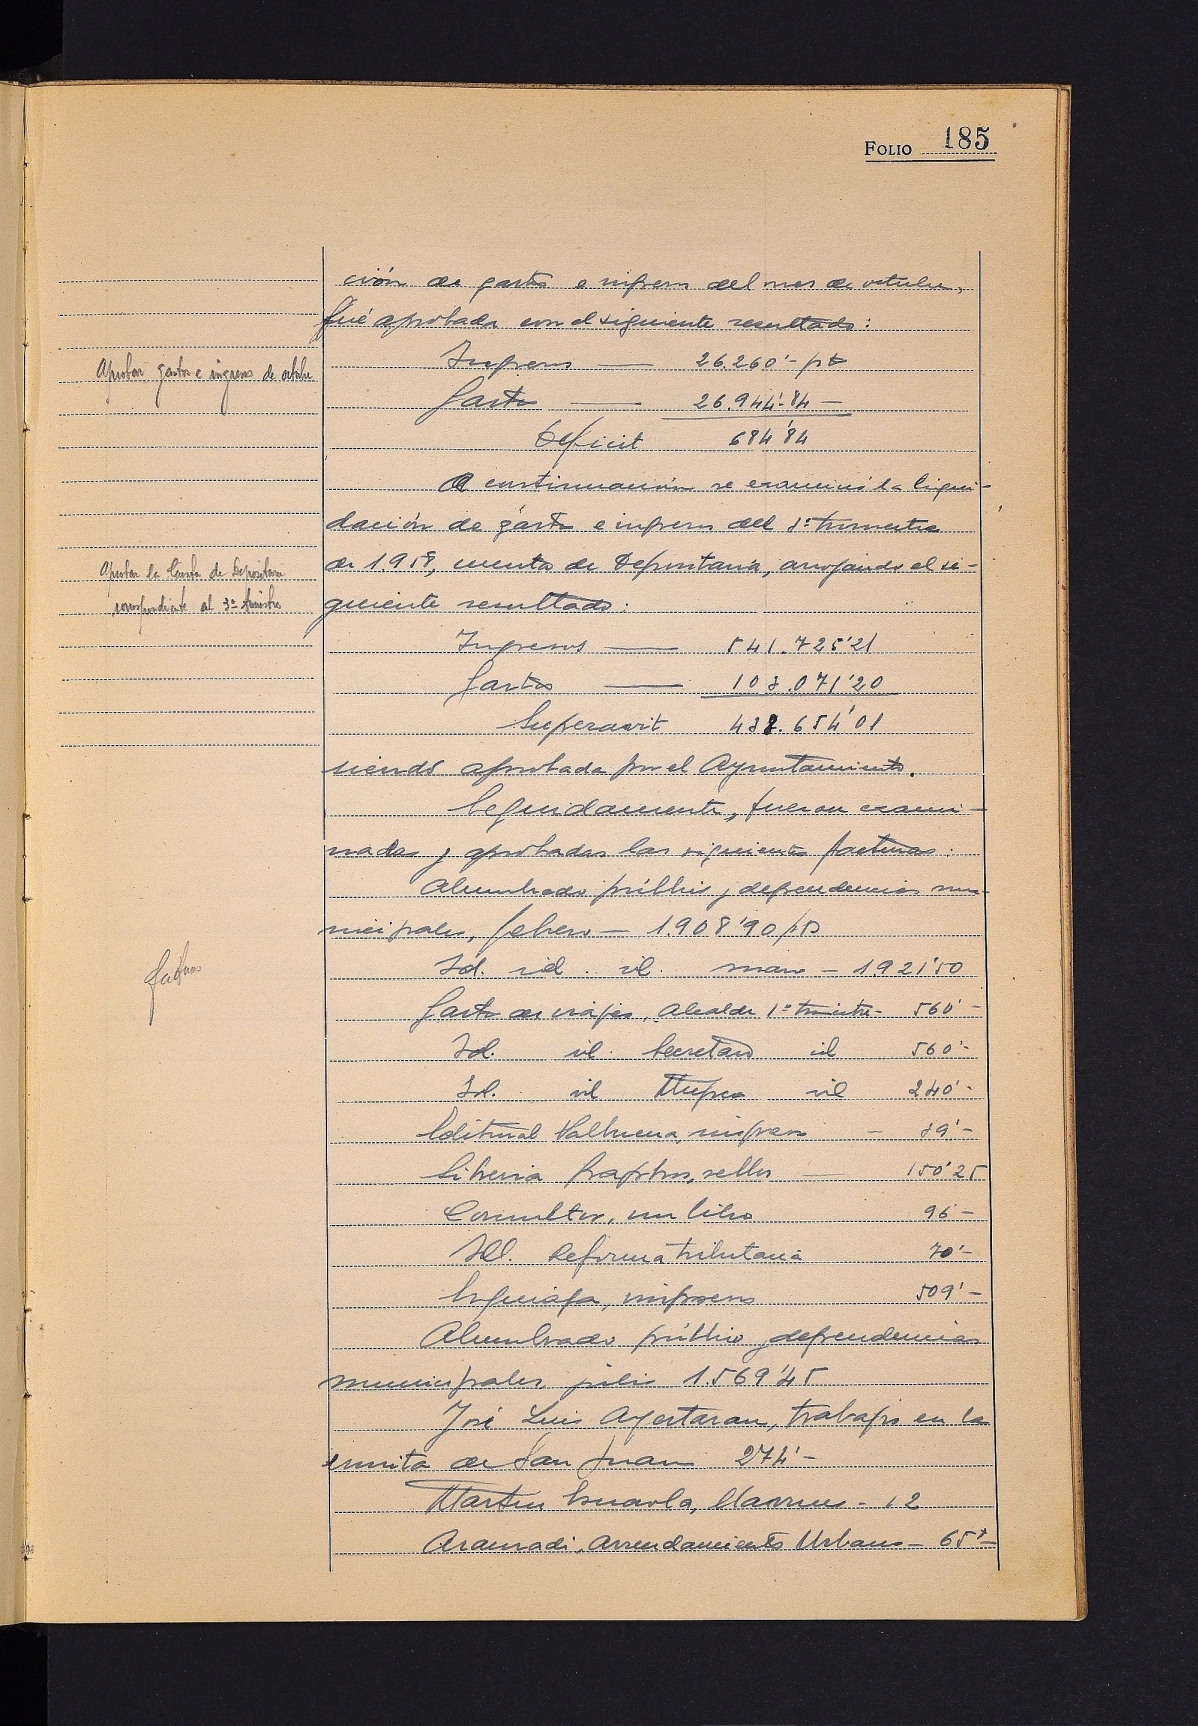 FOLIO 185
ción de gastos e ingresos del mes de octubre,
fué aprobada con el siguiente resultado:
Aprobar gastos e ingresos de octubre
Ingresos — 26.260'- pts
Gastos — 26.944'84 —
Déficit 684'84
A continuación se examinó la liqui-
dación de gastos e ingresos del 3º trimestre
de 1.958, cuenta de Depositaría, arrojando el si-
guiente resultado:
Aprobar la Cuenta de Depositaria
correspondiente al 3º trimestre
Ingresos — 541.725'21
Gastos — 103.071'20
Superavit 438.654'01
siendo aprobada por el Ayuntamiento.
Seguidamente, fueron exami-
nadas y aprobadas las siguientes facturas:
facturas
Alumbrado público y dependencias mu-
nicipales, febrero — 1.908'90 pts
Id. id. id. marzo — 1921'50
Gastos de viajes, Alcalde 1º trimestre - 560'-
Id. id. Secretario id 560'-
Id. id id 240'-
Editorial Valbuena, impresos — 39'-
Libreria sellos — 150'25
Consultor, un libro 96 —
Id. Reforma tributaria 70'-
impresos 509'-
Alumbrado público y dependencias
municipales julio 1.569'45
José Luis Ayestaran, trabajos en la
ermita de San Juan 274'-
Martin - 12
Aranzadi, Arrendamientos Urbanos — 65'-